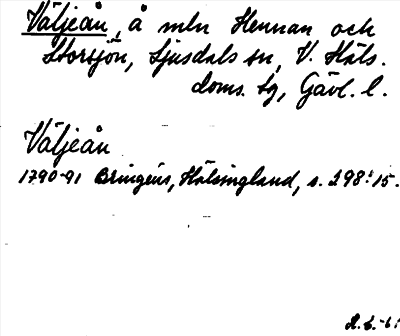 Väljeån, å mln Hennan och
Storsjön, Ljusdals sn, V. Häls.
doms. tg, Gävl. l.
Väljeån
1790-91 Bringéus, Hälsingland, s. 298: 15.